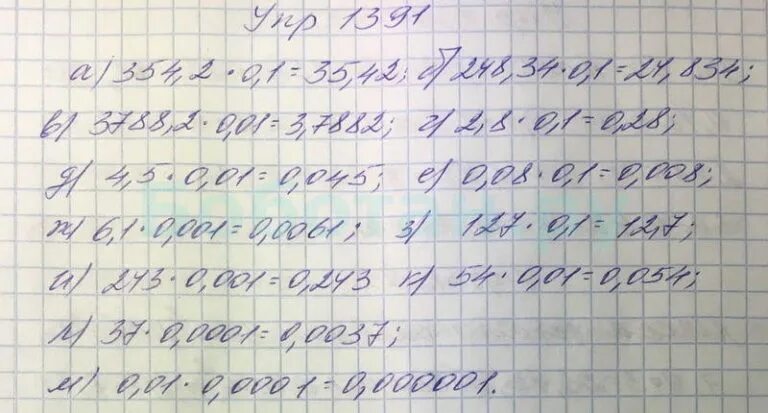 Упр 1391
а) 354,2 · 0,1 = 35,42; б) 248,34 · 0,1 = 24,834;
в) 3788,2 · 0,01 = 3,7882; г) 2,8 · 0,1 = 0,28;
д) 4,5 · 0,01 = 0,045; е) 0,08 · 0,1 = 0,008;
ж) 6,1 · 0,001 = 0,0061; з) 127 · 0,1 = 12,7;
и) 243 · 0,001 = 0,243 к) 54 · 0,01 = 0,054;
л) 37 · 0,0001 = 0,0037;
м) 0,01 · 0,0001 = 0,000001.